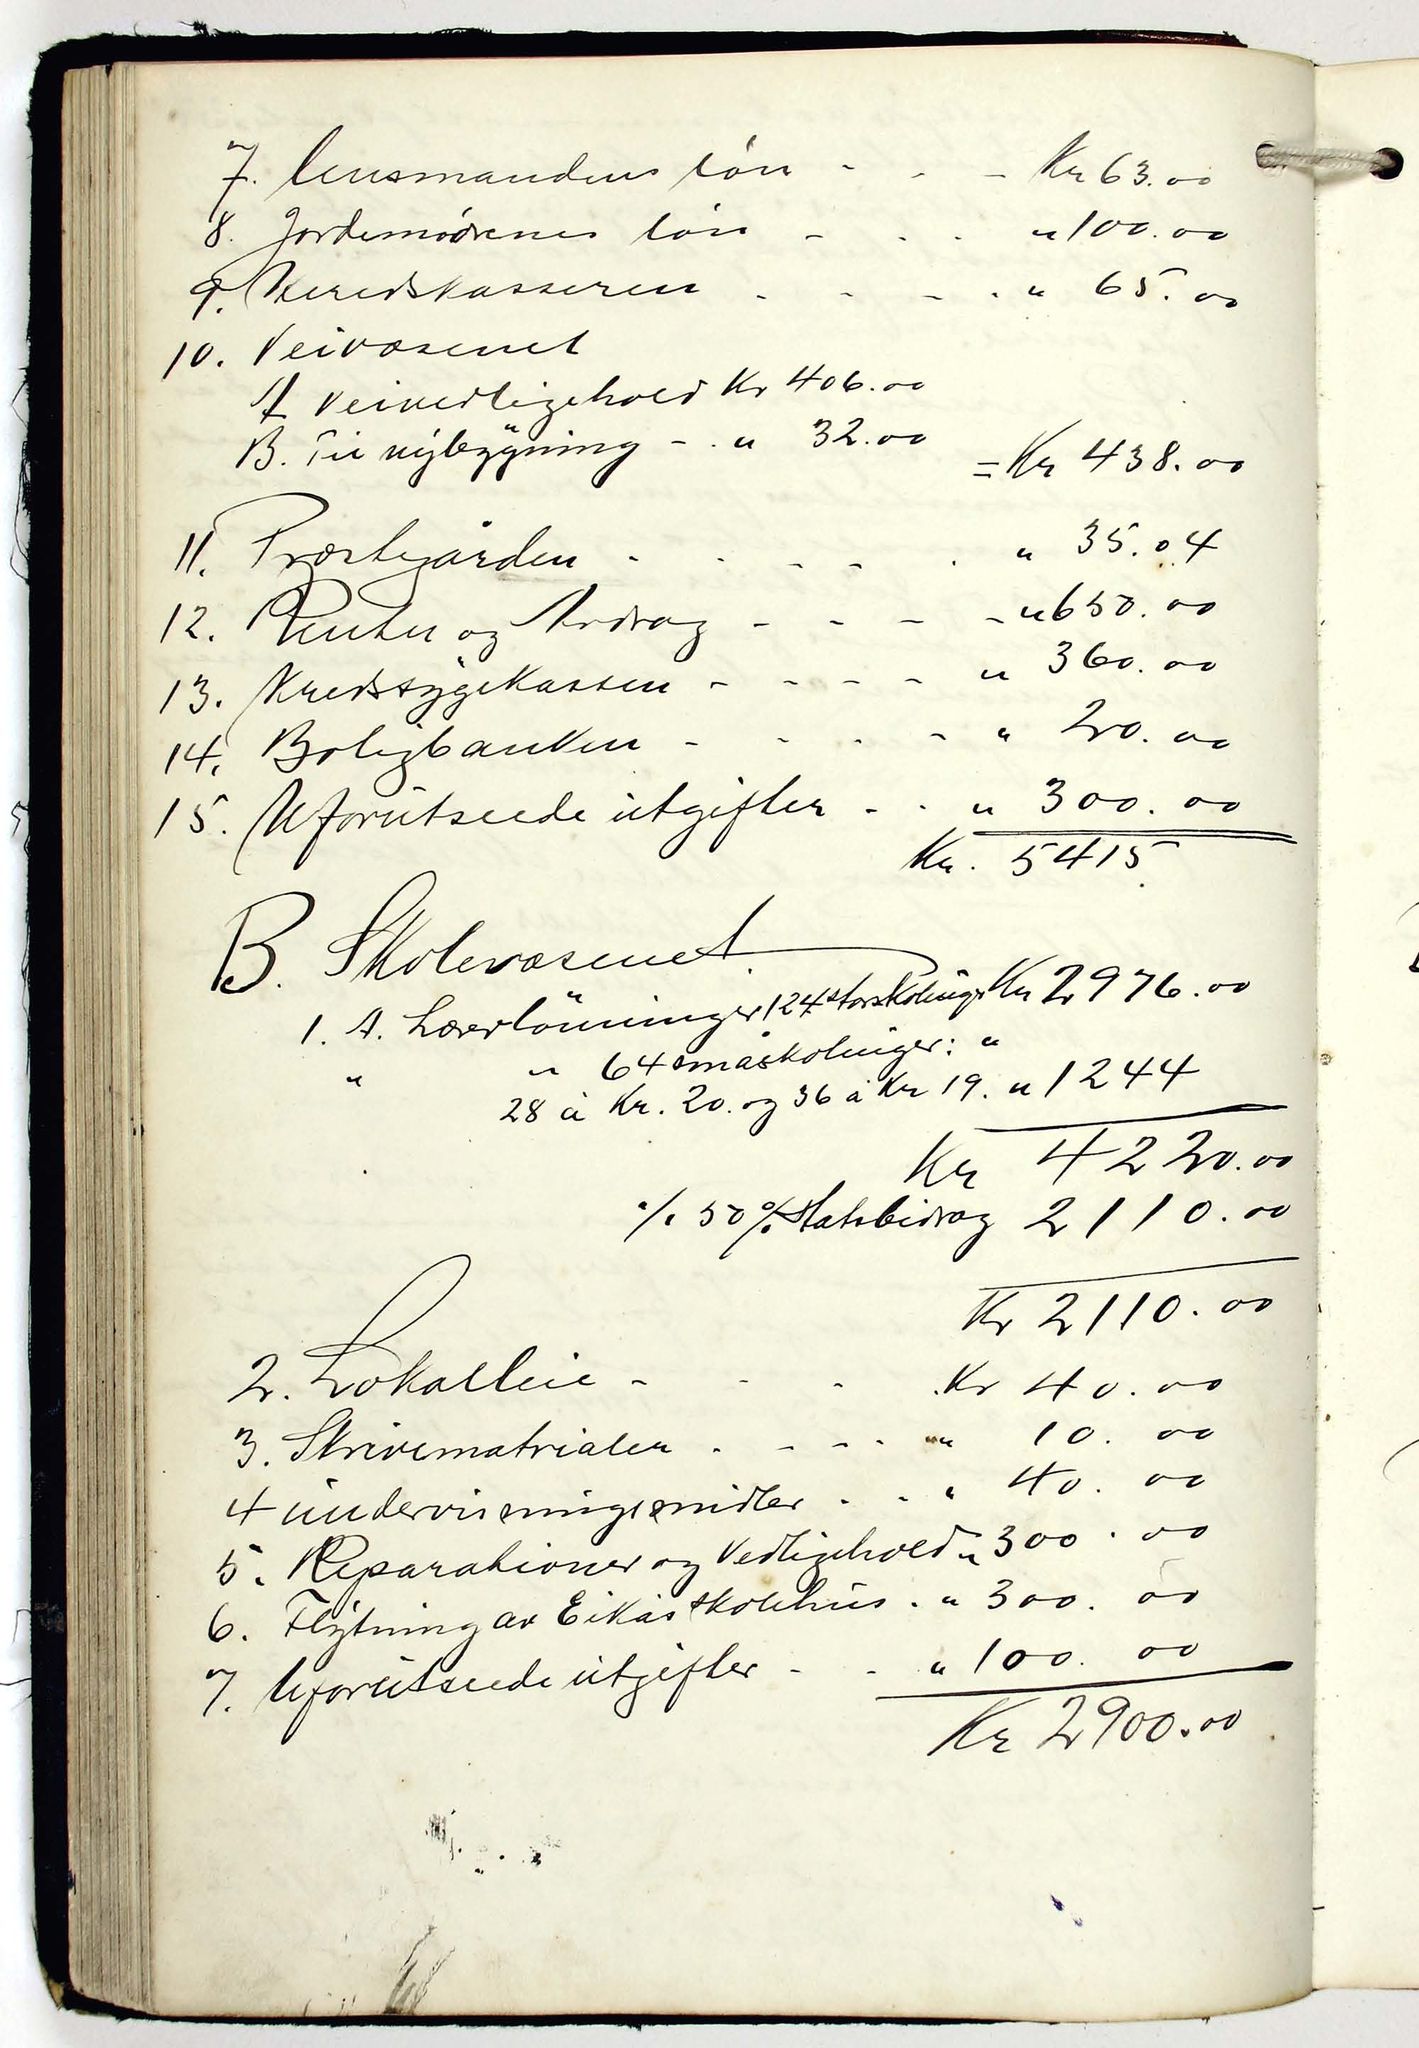 7. Lensmandens løn - - - Kr 63.00
8. Jordemødrenes løn - - - " 100.00
9. Kredskasseren - - - - " 65.00
10. Veivæsenet
A Veivedligehold Kr 406.00
B. Til nybygning - - " 32.00
= Kr 438.00
11. Præstegården - - - - - " 35.04
12. Renter og Avdrag - - - - " 650.00
13. Kredssygekassen - - - - " 360.00
14. Boligbanken - - - - " 20.00
15. Uforutseede utgifter - - " 300.00
Kr. 5415
B. Skolevæsenet
1. A. Lærerlønninger 124 storskoleuger Kr 2976.00
" " 64 småskoleuger: "
28 à Kr. 20. og 36 à Kr 19. " 1244
Kr 4220.00
./. 50 % Statsbidrag 2110.00
Kr 2110.00
2. Lokalleie - - - Kr 40.00
3. Skrivematrialer - - - - " 10.00
4 undervisningsmidler - - " 40.00
5. Reparationer og Vedligehold " 300.00
6. Flytning av Eikås skolehus. " 300.00
7. Uforutseede utgifter - - " 100.00
Kr 2900.00